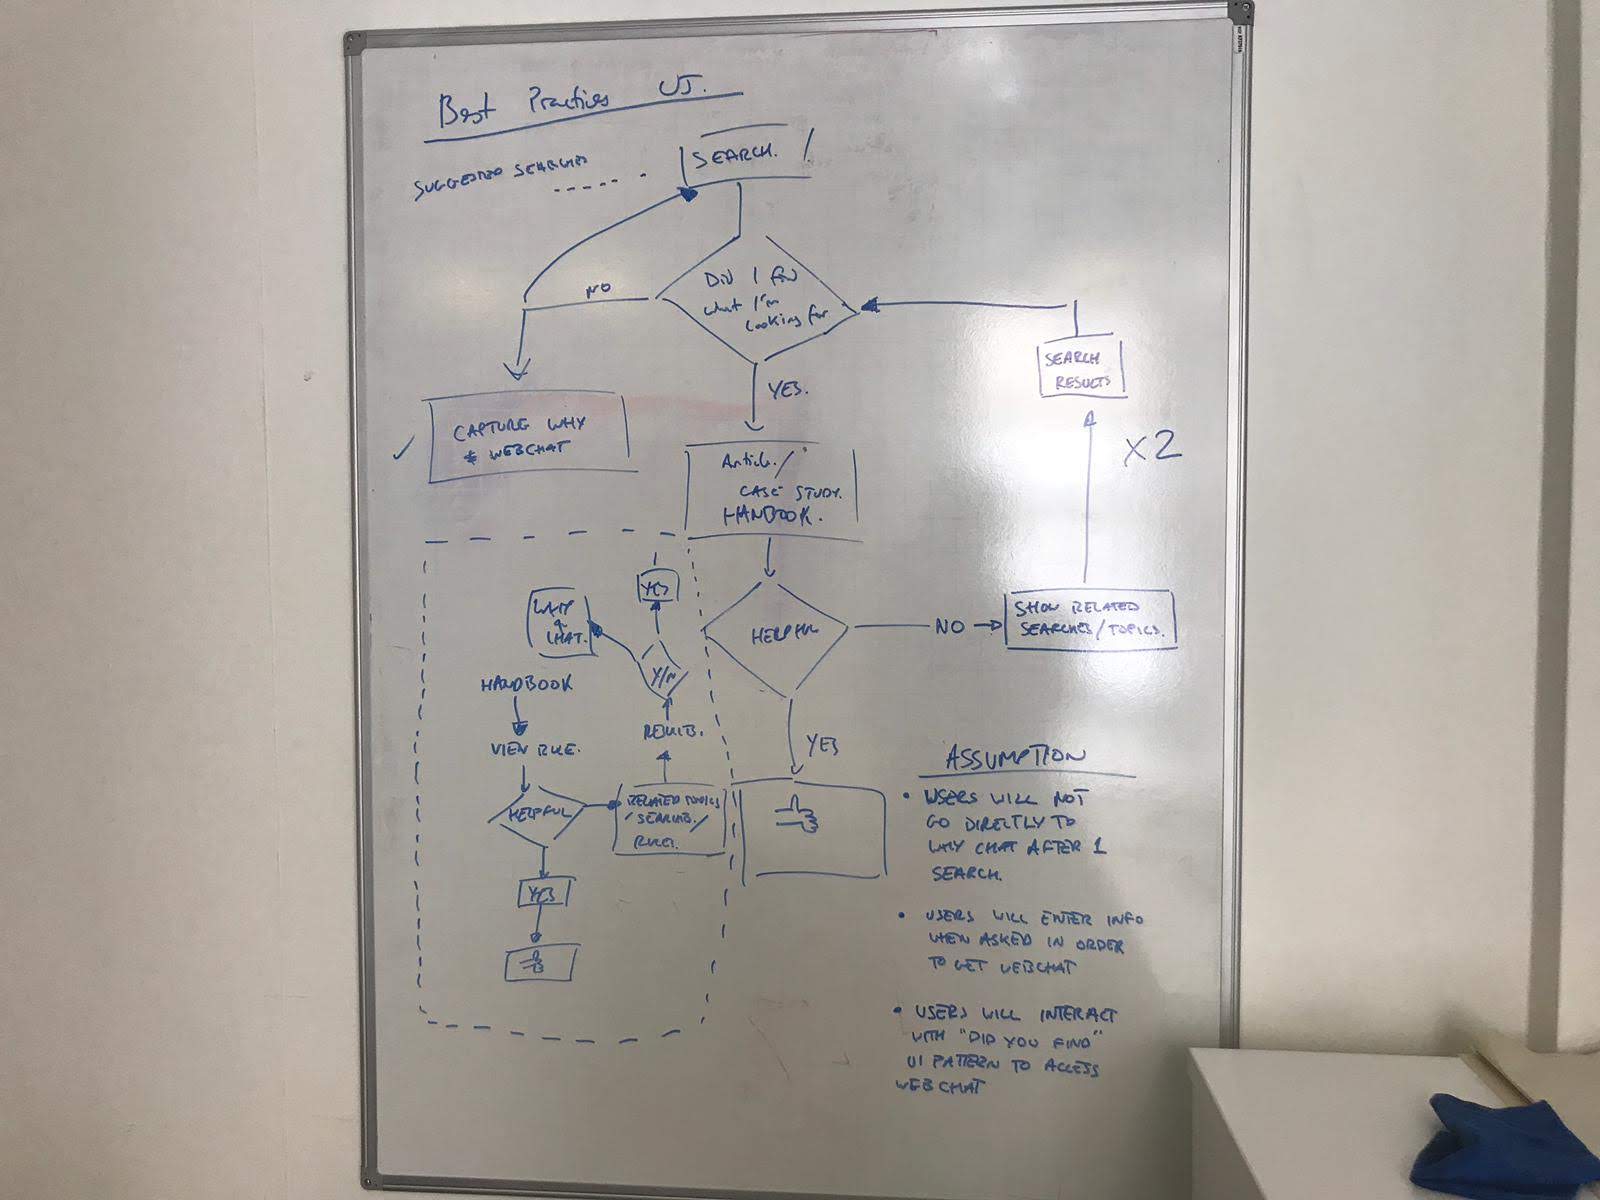 Best Practices UJ.
SUGGESTED SEARCHES
SEARCH.
DID I FIND
what I'm
looking for
NO
YES.
SEARCH
RESULTS
X2
CAPTURE WHY
& WEBCHAT
Article/
CASE STUDY.
HANBOOK.
HELPFUL
NO
SHOW RELATED
SEARCHES/TOPICS.
YES
YES
WHY
&
CHAT.
Y/N
HANDBOOK
RESULTS.
VIEW RULE.
HELPFUL
RELATED TOPICS
/SEARCHES/
RULE.
YES
ASSUMPTION
• USERS WILL NOT
GO DIRECTLY TO
WHY CHAT AFTER 1
SEARCH.
• USERS WILL ENTER INFO
WHEN ASKED IN ORDER
TO GET WEBCHAT
• USERS WILL INTERACT
WITH "DID YOU FIND"
UI PATTERN TO ACCESS
WEBCHAT